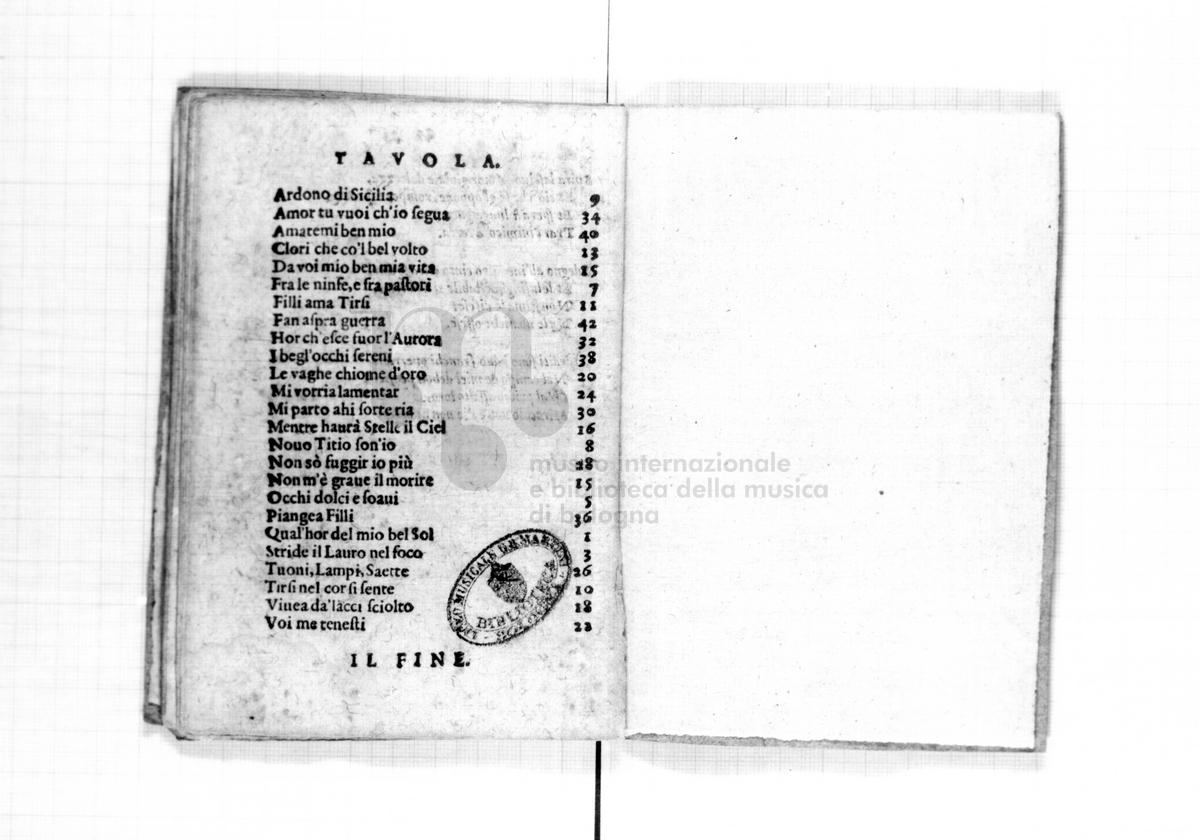 TAVOLA.
Ardono di Sicilia 9
Amor tu vuoi ch'io segua 34
Amatemi ben mio 40
Clori che co'l bel volto 13
Da voi mio ben mia vita 15
Fra le ninfe, e fra pastori 7
Filli ama Tirsi 11
Fan aspra guerra 42
Hor ch'esce fuor l'Aurora 32
I begl'occhi sereni 38
Le vaghe chiome d'oro 20
Mi vorria lamentar 24
Mi parto ahi sorte ria 30
Mentre haurà Stelle il Ciel 16
Nouo Titio son'io 8
Non sò fuggir io più 28
Non m'è graue il morire 15
Occhi dolci e soaui 5
Piangea Filli 36
Qual'hor del mio bel Sol 1
Stride il Lauro nel foco 3
Tuoni, Lampi, Saette 26
Tirsi nel cor si sente 10
Viuea da'lacci sciolto 18
Voi me tenesti 22
IL FINE.
LICEO MUSICALE G.B. MARTINI
BIBLIOTECA
BOLOGNA
museo internazionale
e biblioteca della musica
di bologna